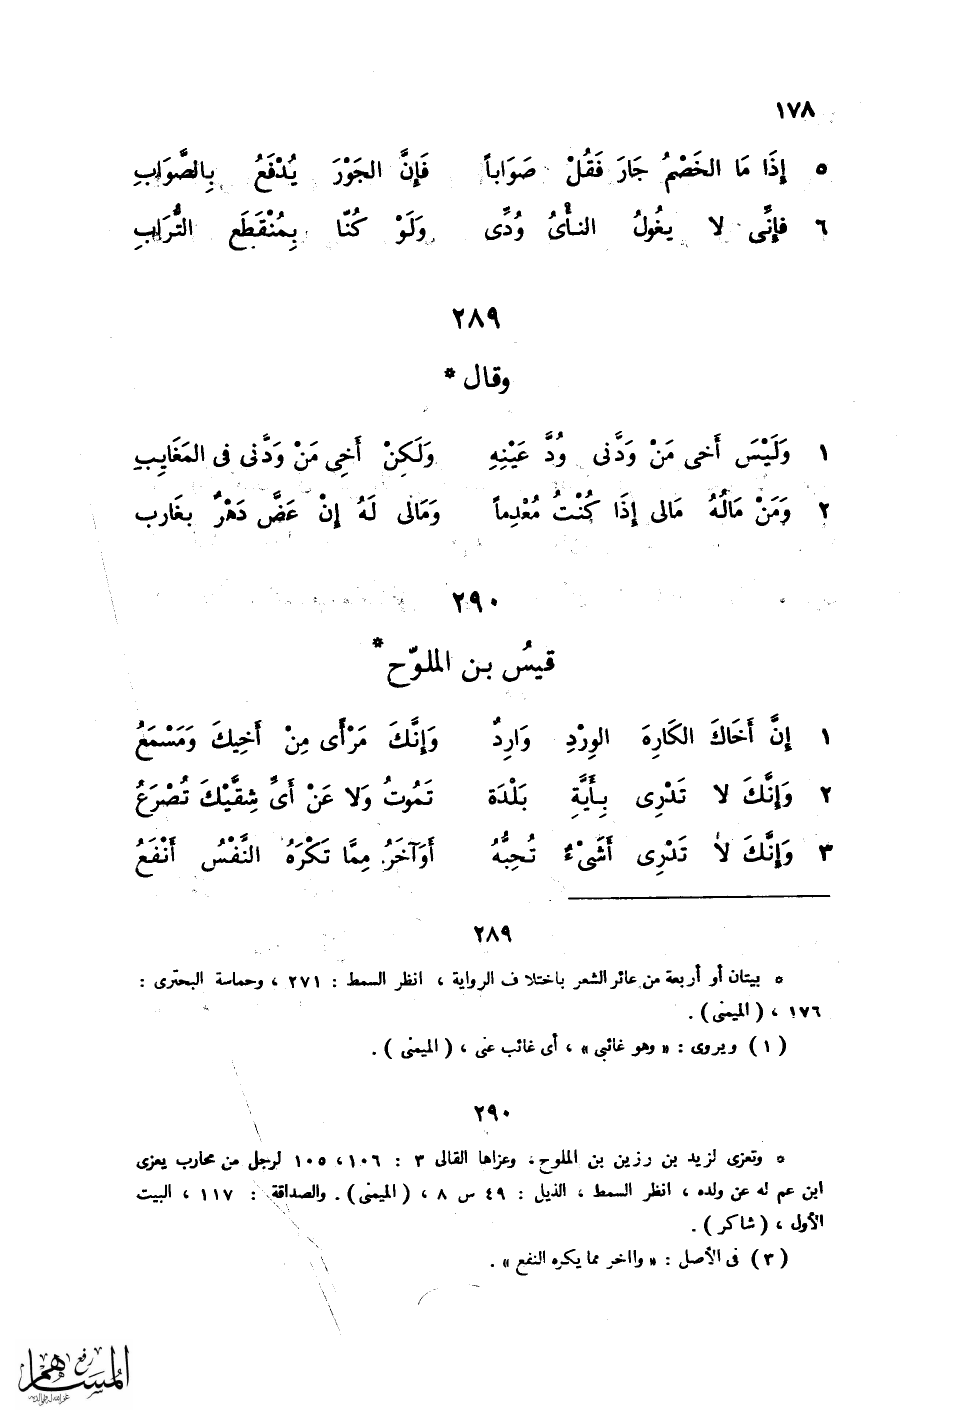 ١٧٨
٥ إِذَا مَا الخَصْمُ جَارَ فَقُلْ صَوَاباً فَإِنَّ الجَوْرَ يُدْفَعُ بِالصَّوَابِ
٦ فَإِنِّى لا يغُولُ النأْىُ وُدِّى وَلَوْ كُنّا بِمُنْقَطَعِ التُّرَابِ
٢٨٩
وقال *
١ وَلَيْسَ أَخى مَنْ وَدَّنى وُدَّ عَيْنِهِ وَلَكِنْ أَخِى مَنْ وَدَّنى فى المَغَايِبِ
٢ وَمَنْ مَالُهُ مَالى إِذَا كُنْتُ مُعْدِماً وَمَالى لَهُ إِنْ عَضَّ دَهْرٌ بغَارب
٢٩٠
قيسُ بن الملوّح *
١ إِنَّ أَخَاكَ الكَارِهَ الوِرْدِ وَارِدٌ وَإِنَّكَ مَرْأَى مِنْ أَخِيكَ وَمَسْمَعُ
٢ وَإِنَّكَ لا تَدْرِى بِأَيَّةِ بَلْدَة تَمُوتُ وَلا عَنْ أَىِّ شِقَّيْكَ تُصْرَعُ
٣ وَإِنَّكَ لاَ تَدْرِى أَشَىْءٌ تُحِبُّهُ أَوَآخَرُ مِمَّا تَكْرَهُ النَّفْسُ أَنْفَعُ
٢٨٩
* بيتان أو أربعة من عائر الشعر باختلاف الرواية ، انظر السمط : ٢٧١ ، وحماسة البحترى :
١٧٦ ، ( الميمنى ) .
( ١ ) ويروى : « وهو غائبى » ، أى غائب عنى ، ( الميمنى ) .
٢٩٠
* وتعزى لزيد بن رزين بن الملوح ، وعزاها القالى ٣ : ١٠٦ ، ١٠٥ لرجل من محارب يعزى
ابن عم له عن ولده ، انظر السمط ، الذيل : ٤٩ س ٨ ، ( الميمنى ) . والصداقة : ١١٧ ، البيت
الأول ، ( شاكر ) .
( ٣ ) فى الأصل : « وااخر مما يكره النفع » .
رفع
المساهم